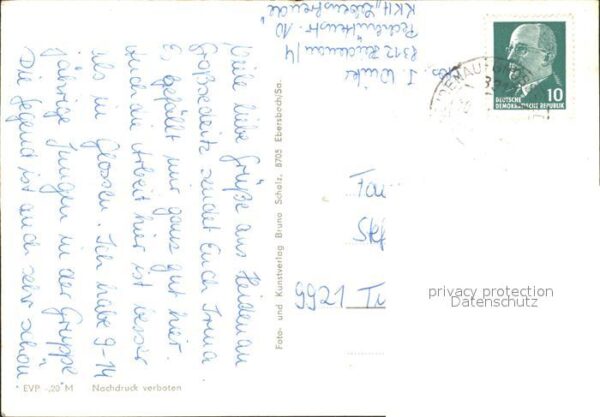 Viele liebe Grüße aus Heidenau
Großsedlitz sendet Euch Irma
Es gefällt mir ganz gut hier.
Auch die Arbeit hier ist besser
als in Glossen. Ich habe 9-14
jährige Jungen in der Gruppe
Die Gegend ist auch sehr schön.
EVP -,20 M Nachdruck verboten
Foto- und Kunstverlag Bruno Scholz, 8705 Ebersbach/Sa.
Abs. I.
8312 Heidenau/4
10
KKH „Lebensfreude"
DEUTSCHE
DEMOKRATISCHE REPUBLIK
10
HEIDENAU
Fam
9921
privacy protection
Datenschutz